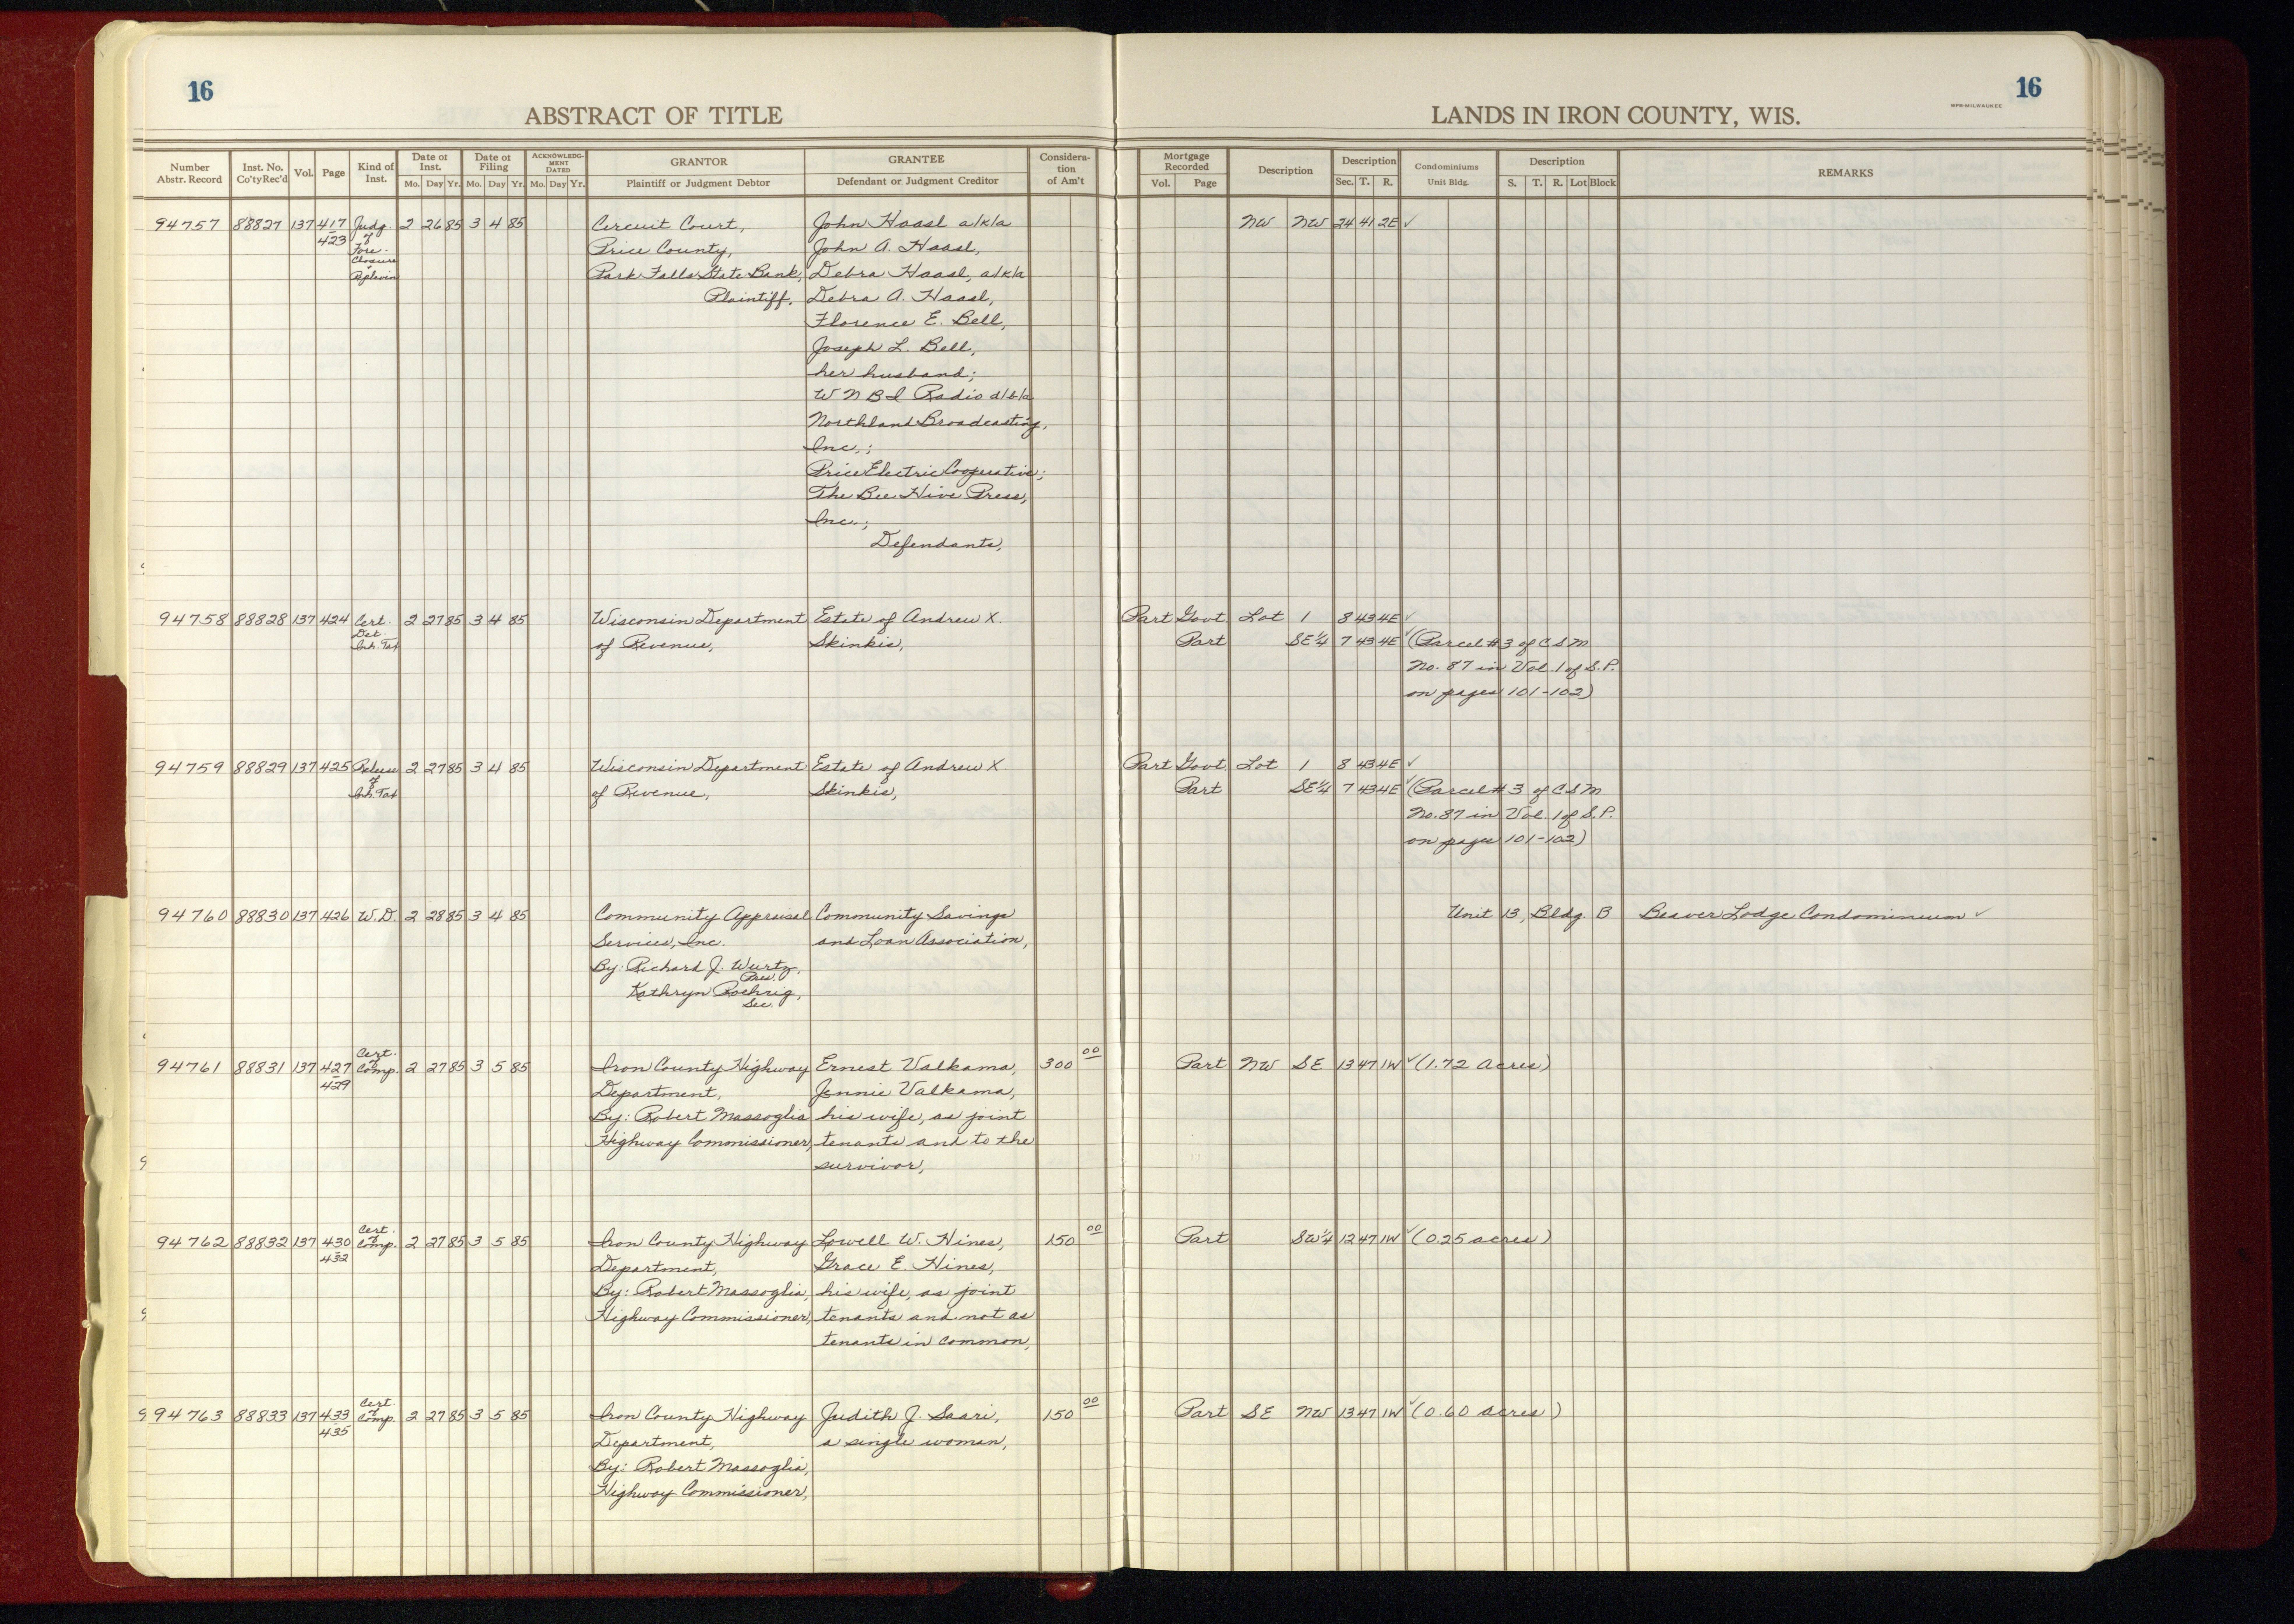 16
16
ABSTRACT OF TITLE
LANDS IN IRON COUNTY, WIS.
WPB-MILWAUKEE
Number Abstr. Record Inst. No. Co'ty Rec'd Vol. Page Kind of Inst. Date of Inst. Mo. Day Yr. Date of Filing Mo. Day Yr. ACKNOWLEDGMENT DATED Mo. Day Yr. GRANTOR Plaintiff or Judgment Debtor GRANTEE Defendant or Judgment Creditor Consideration of Am't Mortgage Recorded Vol. Page Description Description Sec. T. R. Condominiums Unit Bldg. Description S. T. R. Lot Block REMARKS
94757 88827 137 417 Judg. 2 26 85 3 4 85 Circuit Court, John Haasl a/k/a NW NW 24 41 2E ✓
423 of Fore- Price County, John A. Haasl,
closure & Replevin Park Falls State Bank, Debra Haasl, a/k/a
Plaintiff, Debra A. Haasl,
Florence E. Bell,
Joseph L. Bell,
her husband;
W N B I Radio d/b/a
Northland Broadcasting,
Inc.,;
Price Electric Cooperative;
The Bee Hive Press,
Inc.;
Defendants,
94758 88828 137 424 Cert. 2 27 85 3 4 85 Wisconsin Department Estate of Andrew X. Part Govt. Lot 1 8 43 4E ✓
Det. Inh. Tax of Revenue, Skinkis, Part SE¼ 7 43 4E ✓ (Parcel #3 of C S M
No. 87 in Vol. 1 of S.P.
on pages 101-102)
94759 88829 137 425 Release 2 27 85 3 4 85 Wisconsin Department Estate of Andrew X. Part Govt. Lot 1 8 43 4E ✓
of Inh. Tax of Revenue, Skinkis, Part SE¼ 7 43 4E ✓ (Parcel #3 of C S M
No. 87 in Vol. 1 of S.P.
on pages 101-102)
94760 88830 137 426 W.D. 2 28 85 3 4 85 Community Appraisal Community Savings Unit 13, Bldg. B Beaver Lodge Condominium ✓
Services, Inc. and Loan Association,
By: Richard J. Wurtz,
Pres.
Kathryn Roehrig,
Sec.
94761 88831 137 427 Cert. of Comp. 2 27 85 3 5 85 Iron County Highway Ernest Valkama, 300 00 Part NW SE 13 47 1W ✓ (1.72 acres)
429 Department, Jennie Valkama,
By: Robert Massoglia his wife, as joint
Highway Commissioner, tenants and to the
survivor,
94762 88832 137 430 Cert. of Comp. 2 27 85 3 5 85 Iron County Highway Lowell W. Hines, 150 00 Part SW¼ 12 47 1W ✓ (0.25 acres)
432 Department, Grace E. Hines,
By: Robert Massoglia, his wife, as joint
Highway Commissioner, tenants and not as
tenants in common,
94763 88833 137 433 Cert. of Comp. 2 27 85 3 5 85 Iron County Highway Judith J. Saari, 150 00 Part SE NW 13 47 1W ✓ (0.60 acres)
435 Department, a single woman,
By: Robert Massoglia,
Highway Commissioner,